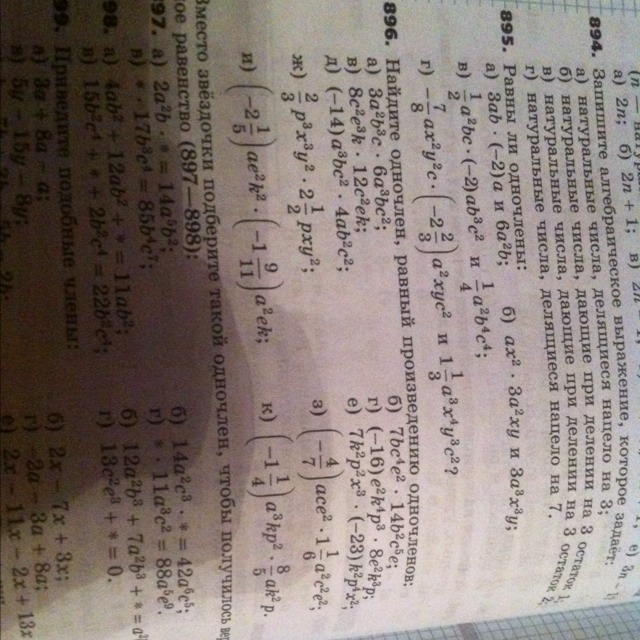 а) 2n; б) 2n + 1; в)
894. Запишите алгебраическое выражение, которое задает:
а) натуральные числа, делящиеся нацело на 3;
б) натуральные числа, дающие при делении на 3 остаток 1;
в) натуральные числа, дающие при делении на 3 остаток
г) натуральные числа, делящиеся нацело на 7.
895. Равны ли одночлены:
а) 3ab · (-2)a и 6a²b; б) ax² · 3a²xy и 3a³x³y;
в) 1/2 a²bc · (-2)ab³c² и 1/4 a²b⁴c³;
г) -7/8 ax²y²c · (-2 2/3) a²xyc² и 1 1/3 a³x⁴y³c³?
896. Найдите одночлен, равный произведению одночленов:
а) 3a²b³c · 6a³bc²; б) 7bc⁴e² · 14b²c⁵e;
в) 8c²e³k · 12c²ek; г) (-16)e²k⁴p³ · 8e²k³p;
д) (-14)a³bc² · 4ab²c²; е) 7k²p²x³ · (-23)k²p²x²;
ж) 2/3 p³x³y² · 2 1/2 pxy²; з) (-4/7) ace² · 1 1/6 a²c²e²;
и) (-2 1/5) ac²k² · (-1 9/11) a²ck; к) (-1 1/4) a³kp² · 8/5 ak²p.
Вместо звёздочки подберите такой одночлен, чтобы получилось
равенство (897—898):
897. а) 2a²b · * = 14a³b²; б) 14a²c³ · * = 42a⁶c⁵;
в) * · 17b²c⁴ = 85b⁴c⁷; г) * · 11a³c² = 88a⁵c⁶.
898. а) 4ab² + 12ab² + * = 11ab²; б) 12a²b³ + 7a²b³ + * =
в) 15b²c⁴ + * + 2b²c⁴ = 22b²c⁴; г) 13c²e³ + * = 0.
Приведите подобные члены:
а) 3a + 8a - a; б) 2x - 7x + 3x;
в) 5y - 15y - 8y; г) -2a - 3a + 8a;
е) 2x - 11x - 2x + 13x